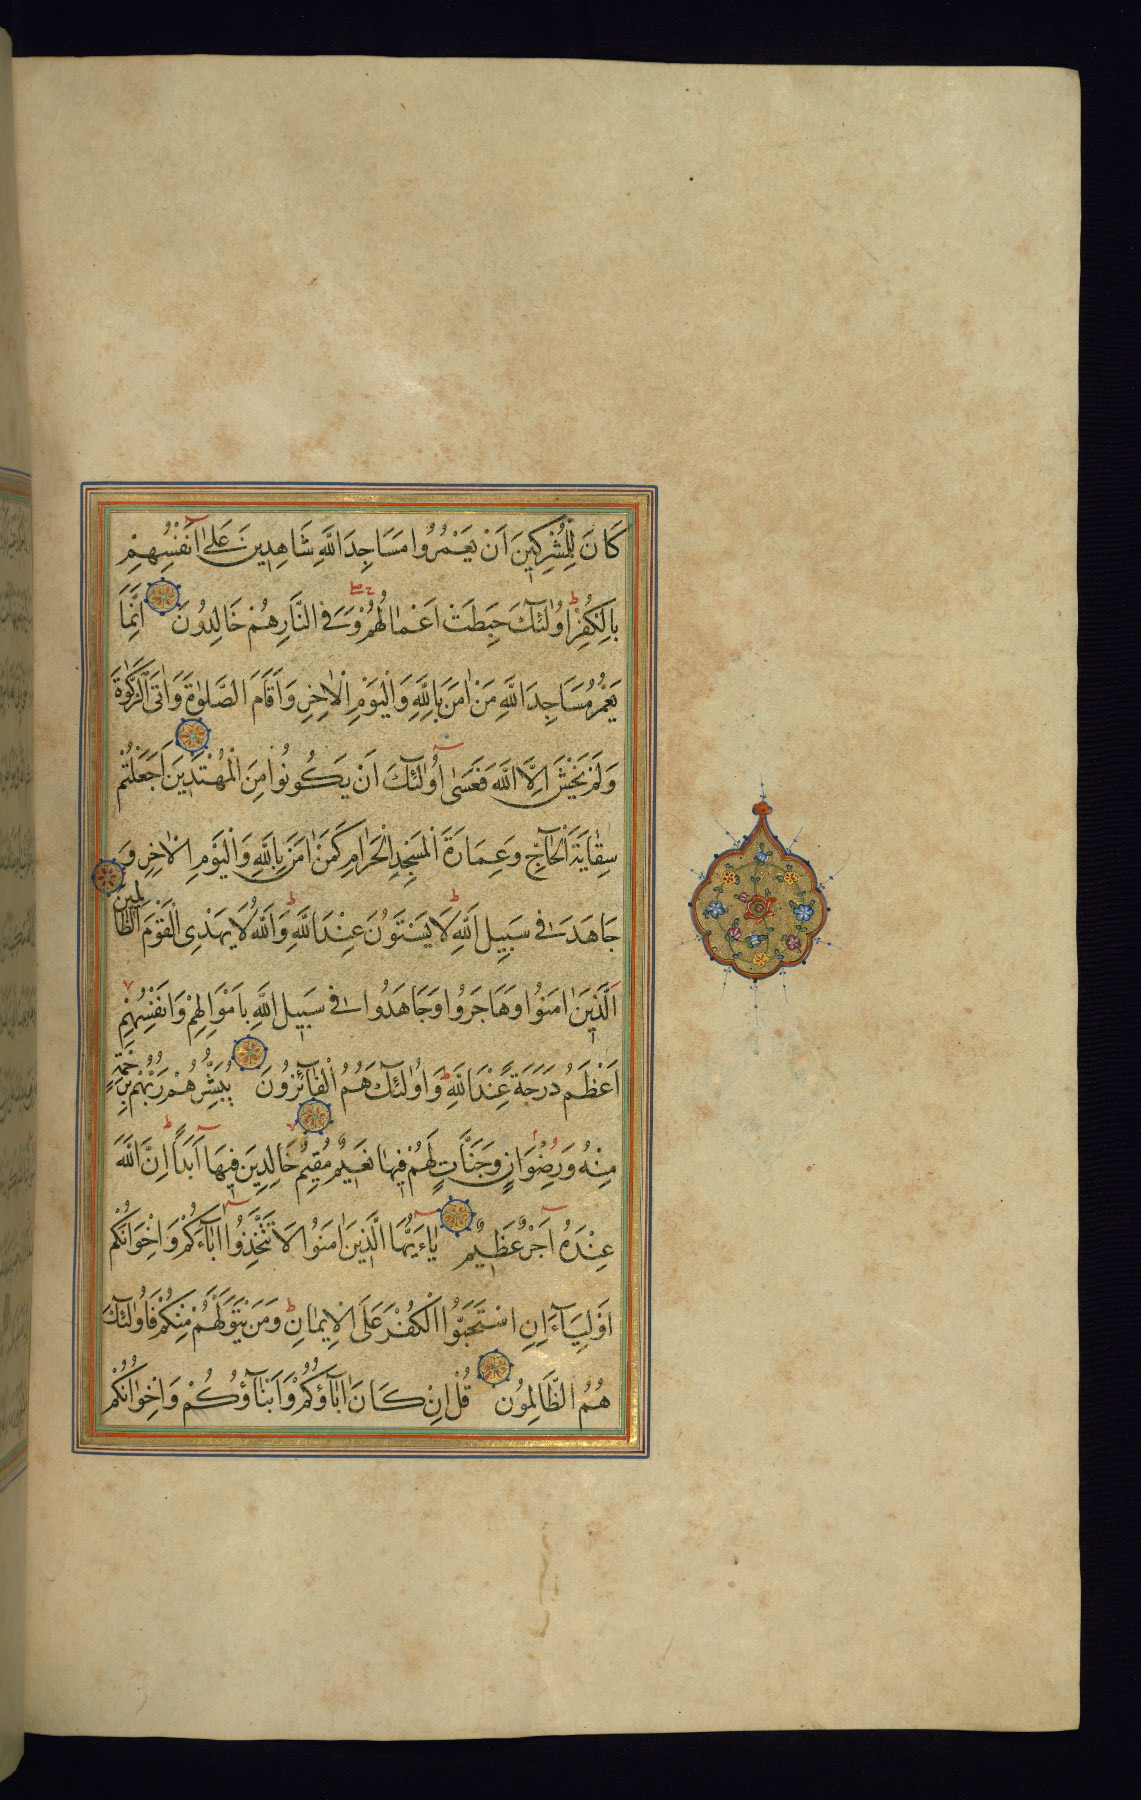 كَانَ لِلْمُشْرِكِينَ اَنْ يَعْمُرُوا مَسَاجِدَ اللّٰهِ شَاهِدِينَ عَلٰى اَنْفُسِهِمْ
بِالْكُفْرِ اُولٰئِكَ حَبِطَتْ اَعْمَالُهُمْ وَفِي النَّارِ هُمْ خَالِدُونَ اِنَّمَا
يَعْمُرُ مَسَاجِدَ اللّٰهِ مَنْ اٰمَنَ بِاللّٰهِ وَالْيَوْمِ الْاٰخِرِ وَاَقَامَ الصَّلٰوةَ وَاٰتَى الزَّكٰوةَ
وَلَمْ يَخْشَ اِلَّا اللّٰهَ فَعَسٰى اُولٰئِكَ اَنْ يَكُونُوا مِنَ الْمُهْتَدِينَ اَجَعَلْتُمْ
سِقَايَةَ الْحَاجِّ وَعِمَارَةَ الْمَسْجِدِ الْحَرَامِ كَمَنْ اٰمَنَ بِاللّٰهِ وَالْيَوْمِ الْاٰخِرِ وَ
جَاهَدَ فِي سَبِيلِ اللّٰهِ لَا يَسْتَوُنَ عِنْدَ اللّٰهِ وَاللّٰهُ لَا يَهْدِي الْقَوْمَ الظَّالِمِينَ
اَلَّذِينَ اٰمَنُوا وَهَاجَرُوا وَجَاهَدُوا فِي سَبِيلِ اللّٰهِ بِاَمْوَالِهِمْ وَاَنْفُسِهِمْ
اَعْظَمُ دَرَجَةً عِنْدَ اللّٰهِ وَاُولٰئِكَ هُمُ الْفَائِزُونَ يُبَشِّرُهُمْ رَبُّهُمْ بِرَحْمَةٍ
مِنْهُ وَرِضْوَانٍ وَجَنَّاتٍ لَهُمْ فِيهَا نَعِيمٌ مُقِيمٌ خَالِدِينَ فِيهَا اَبَدًا اِنَّ اللّٰهَ
عِنْدَهُ اَجْرٌ عَظِيمٌ يَاءَيُّهَا الَّذِينَ اٰمَنُوا لَا تَتَّخِذُوا اٰبَاءَكُمْ وَاِخْوَانَكُمْ
اَوْلِيَاءَ اِنِ اسْتَحَبُّوا الْكُفْرَ عَلَى الْاِيمَانِ وَمَنْ يَتَوَلَّهُمْ مِنْكُمْ فَاُولٰئِكَ
هُمُ الظَّالِمُونَ قُلْ اِنْ كَانَ اٰبَاؤُكُمْ وَاَبْنَاؤُكُمْ وَاِخْوَانُكُمْ